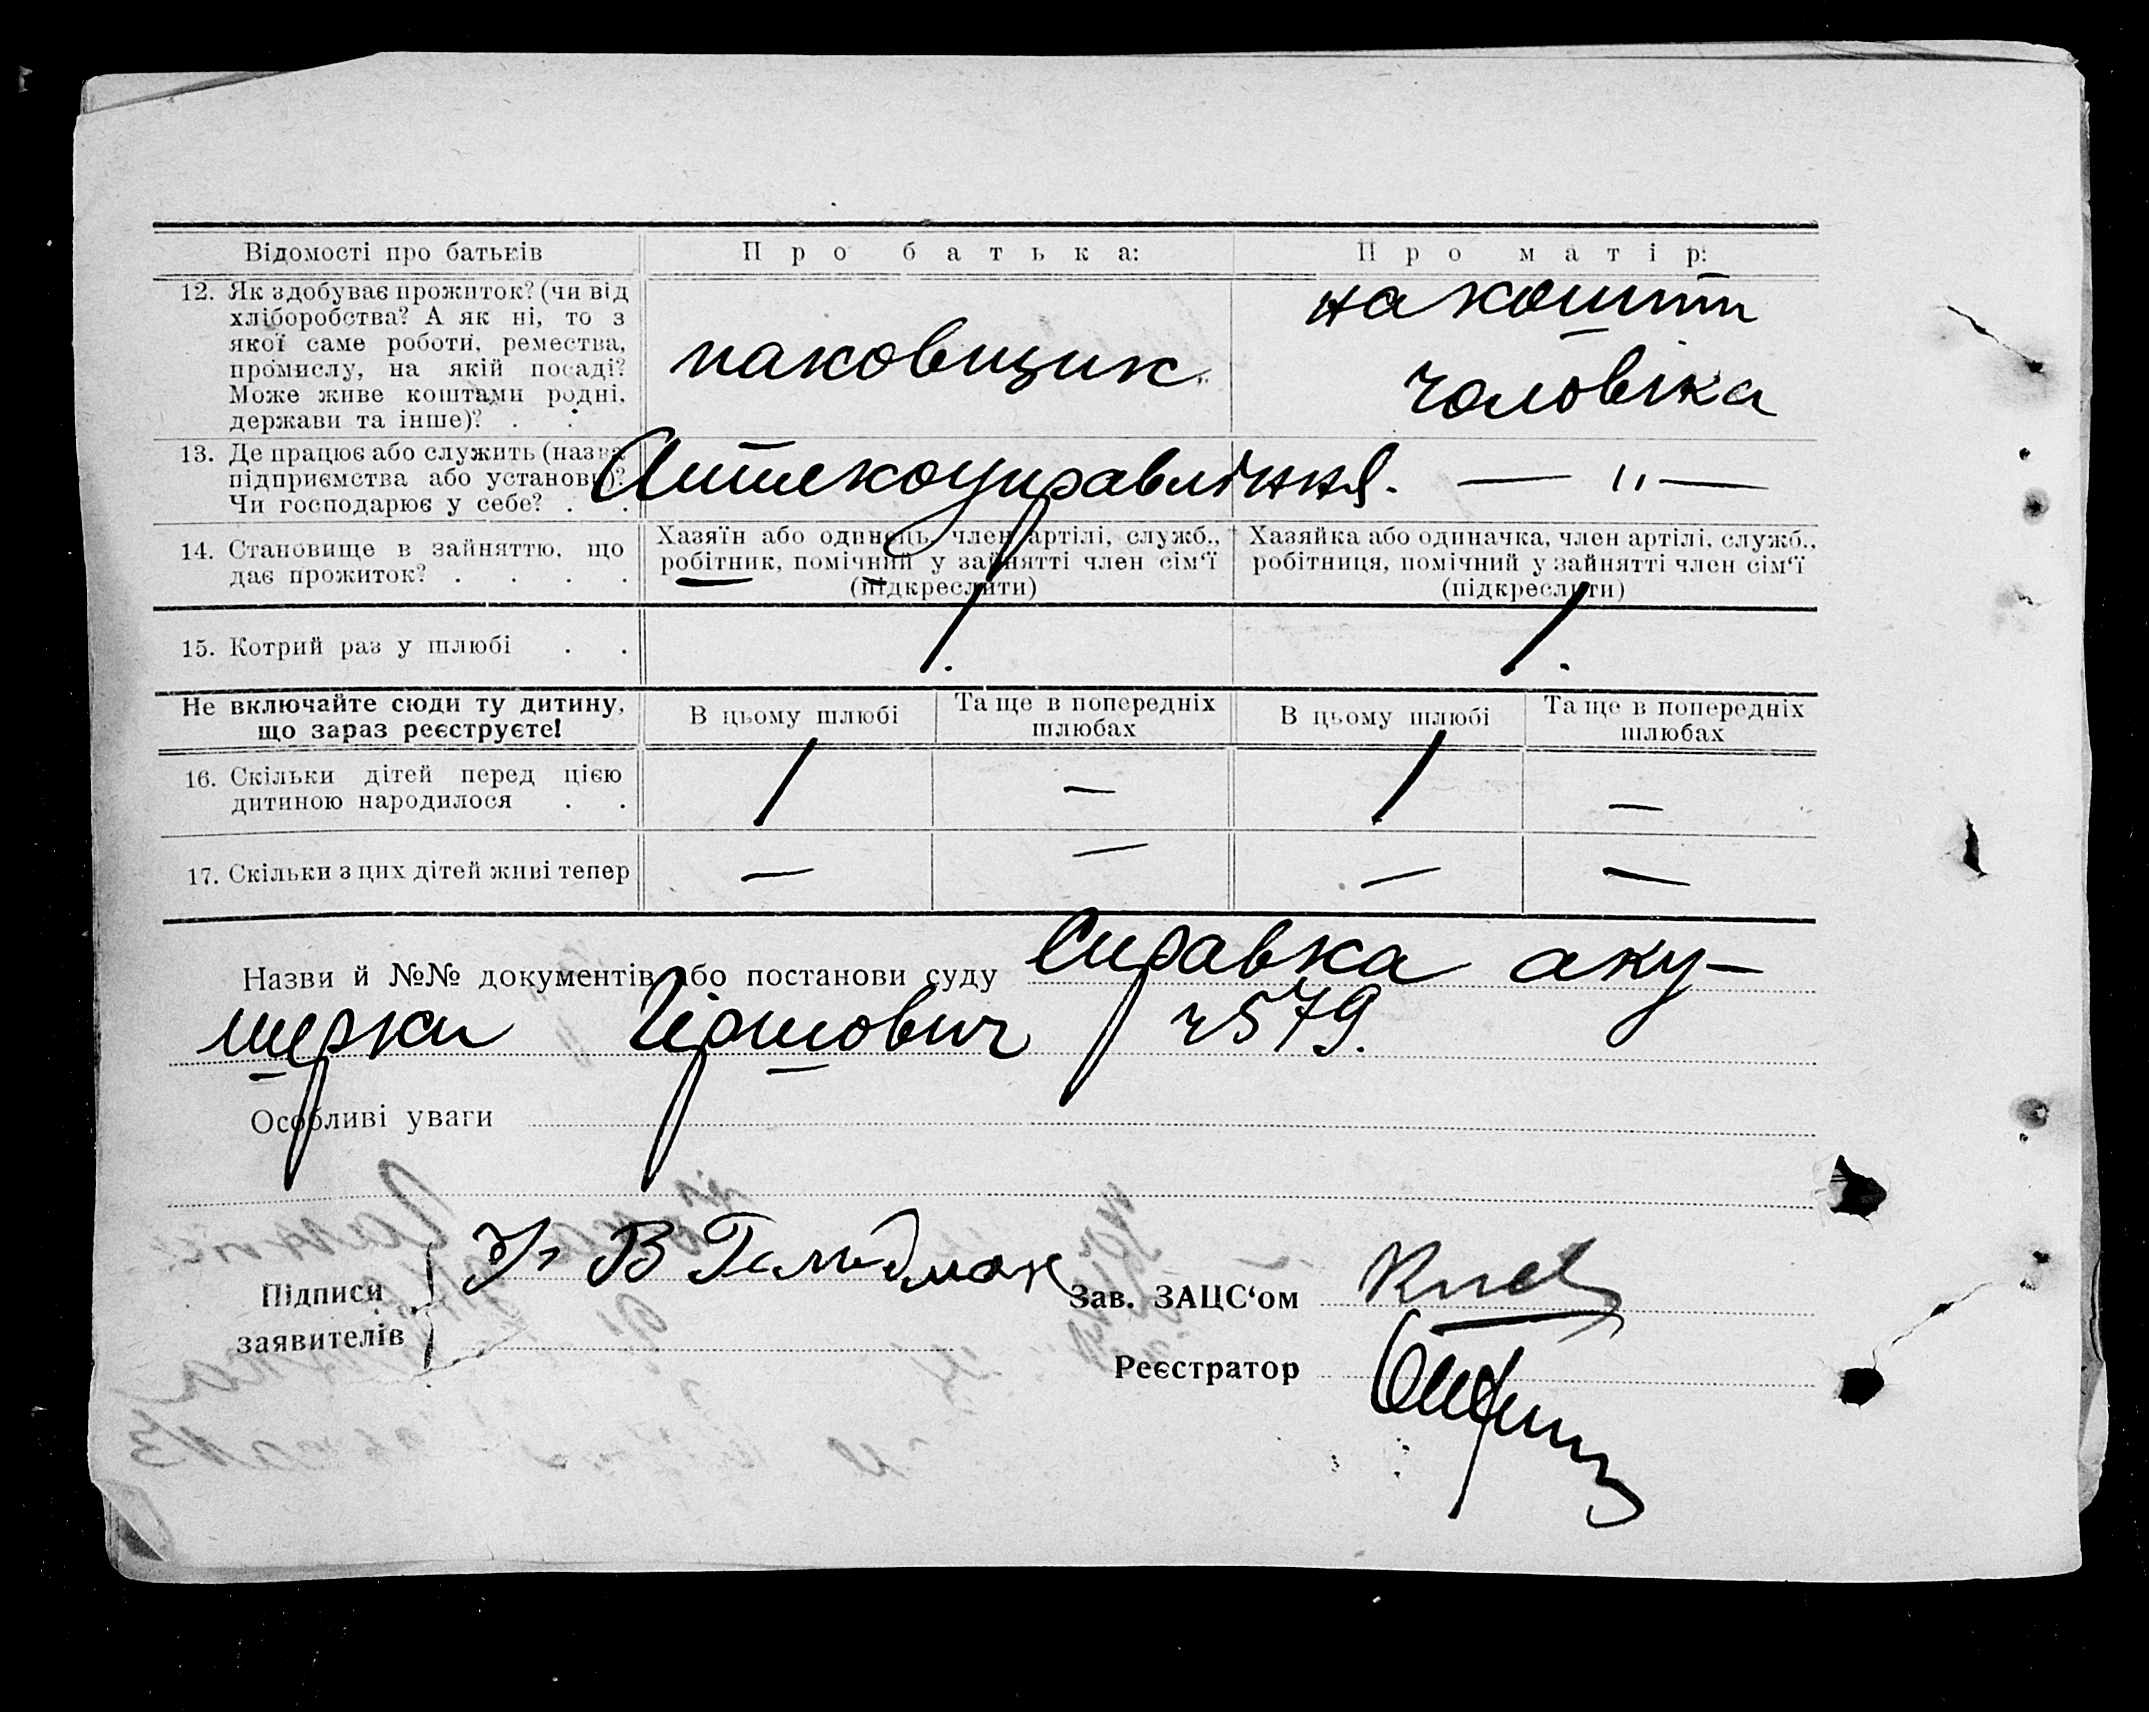 Відомості про батьків
Про батька:
Про матір:
12. Як здобуває прожиток? (чи від
хліборобства? А як ні, то з
якої саме роботи, ремества,
промислу, на якій посаді?
Може живе коштами родні,
держави та інше)? . .
паковщик
на кошти
чоловіка
13. Де працює або служить (назва
підприємства або установи)?
Чи господарює у себе? . .
Аптекоуправління.
— " —
14. Становище в зайняттю, що
дає прожиток? . . . .
Хазяїн або одинець, член артілі, служб.,
робітник, помічний у зайнятті член сім‘ї
(підкреслити)
Хазяйка або одиначка, член артілі, служб.,
робітниця, помічний у зайнятті член сім‘ї
(підкреслити)
15. Котрий раз у шлюбі . .
1.
1.
Не включайте сюди ту дитину,
що зараз реєструєте!
В цьому шлюбі
Та ще в попередніх
шлюбах
В цьому шлюбі
Та ще в попередніх
шлюбах
16. Скільки дітей перед цією
дитиною народилося . .
1
—
1
—
17. Скільки з цих дітей живі тепер
—
—
—
—
Назви й №№ документів або постанови суду Справка аку-
шерки Гіршович ч 579.
Особливі уваги
Підписи
заявителів
В
Зав. ЗАЦС‘ом
Реєстратор